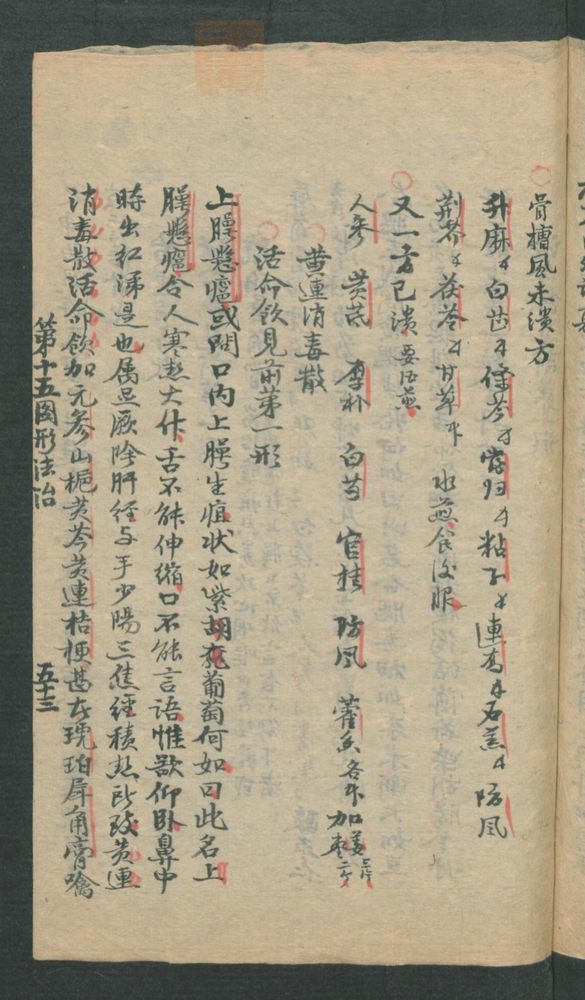 骨槽風未潰方
升麻 白芷 條芩 當归 粘子 連翹 石羔 防风
荆芥 茯苓 甘草 水煎食後服
又一方已潰
人参 黄芪 厚朴 白芍 官桂 防风 藿香各 加姜三片棗二个
黄連消毒散
活命飲見前第一形
上腭懸癰或問口内上腭生疽状如紫葡萄何如曰此名上
腭懸癰令人寒熱大作舌不能伸縮口不能言語惟欲仰卧鼻中
時出紅涕是也属足厥陰肝经与手少陽三焦經積热所致黄連
消毒散活命飲加元参山梔黄芩黄連桔梗甚者琥珀犀角膏噙
第十五図形法治
五十三